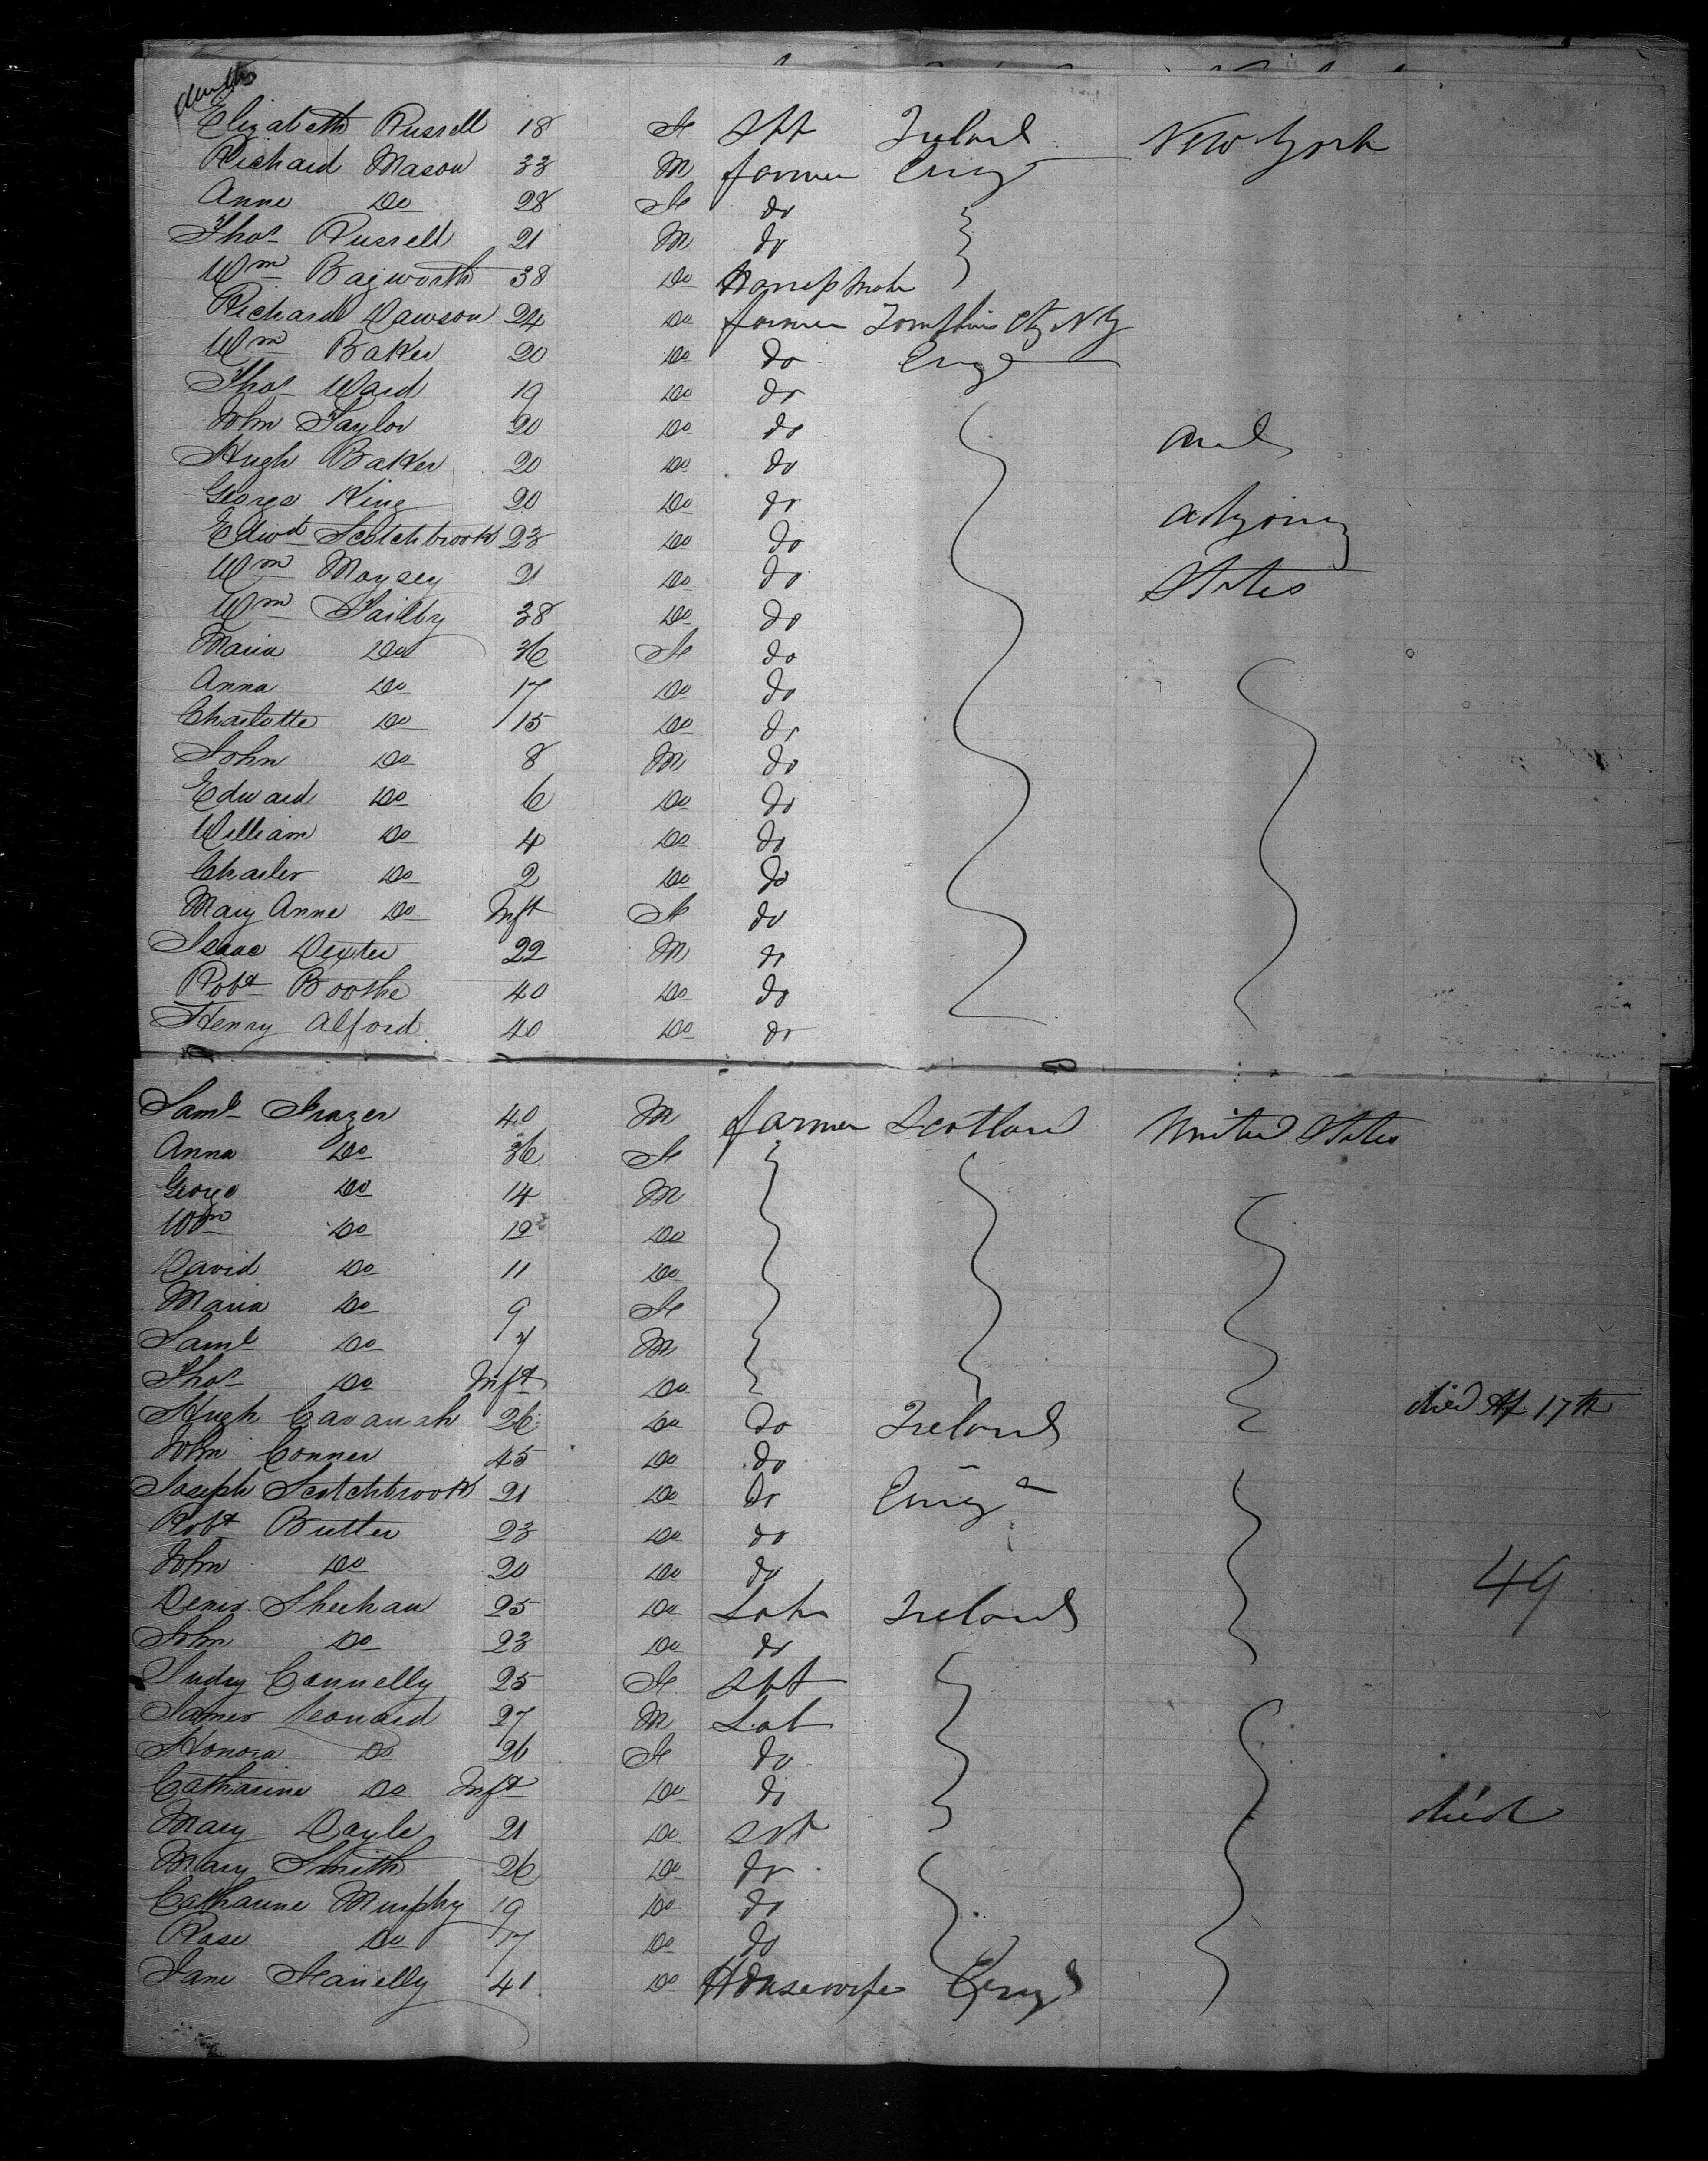 Elizabeth Russell 18 F Spr Ireland New York
Richard Mason 33 M farmer Eng
Anne Do 28 F do
Thos Russell 21 M do
Wm Bagworth 38 Do
Richard Dawson 24 Do farmer Tompkins Cty NY
Wm Baker 20 Do do Eng
Thos Ward 19 Do do
John Taylor 20 Do do and
Hugh Baker 20 Do do
George King 20 Do do adjoing
Edwd Scotchbrook 23 Do do
Wm Moysey 21 Do do States
Wm Tailby 38 Do do
Maria Do 36 F do
Anna Do 17 Do do
Charlotte Do 15 Do do
John Do 8 M do
Edward Do 6 Do do
William Do 4 Do do
Charles Do 2 Do do
Mary Anne Do Inft F do
Isaac Dexter 22 M do
Robt Boothe 40 Do do
Henry Alford 40 Do do
Saml Frazer 40 M farmer Scotland United States
Anna Do 36 F
George Do 14 M
Wm Do 12 Do
David Do 11 Do
Maria Do 9 F
Saml Do 7 M
Thos Do Inft Do
Hugh Cavanah 26 Do do Ireland died Ap 17th
John Conner 45 Do do
Joseph Scotchbrook 21 Do do Eng
Robt Butler 23 Do do
John Do 20 Do do 49
Denis Sheehan 25 Do Labr Ireland
John Do 23 Do do
Judy Connelly 25 F Spt
James Leonard 27 M Lab
Honora Do 26 F do
Catharine Do Inft Do do died
Mary Doyle 21 Do Svt
Mary Smith 26 Do do
Catharine Murphy 19 Do do
Rose Do 17 Do do
Jane 41 Do Housewife Eng